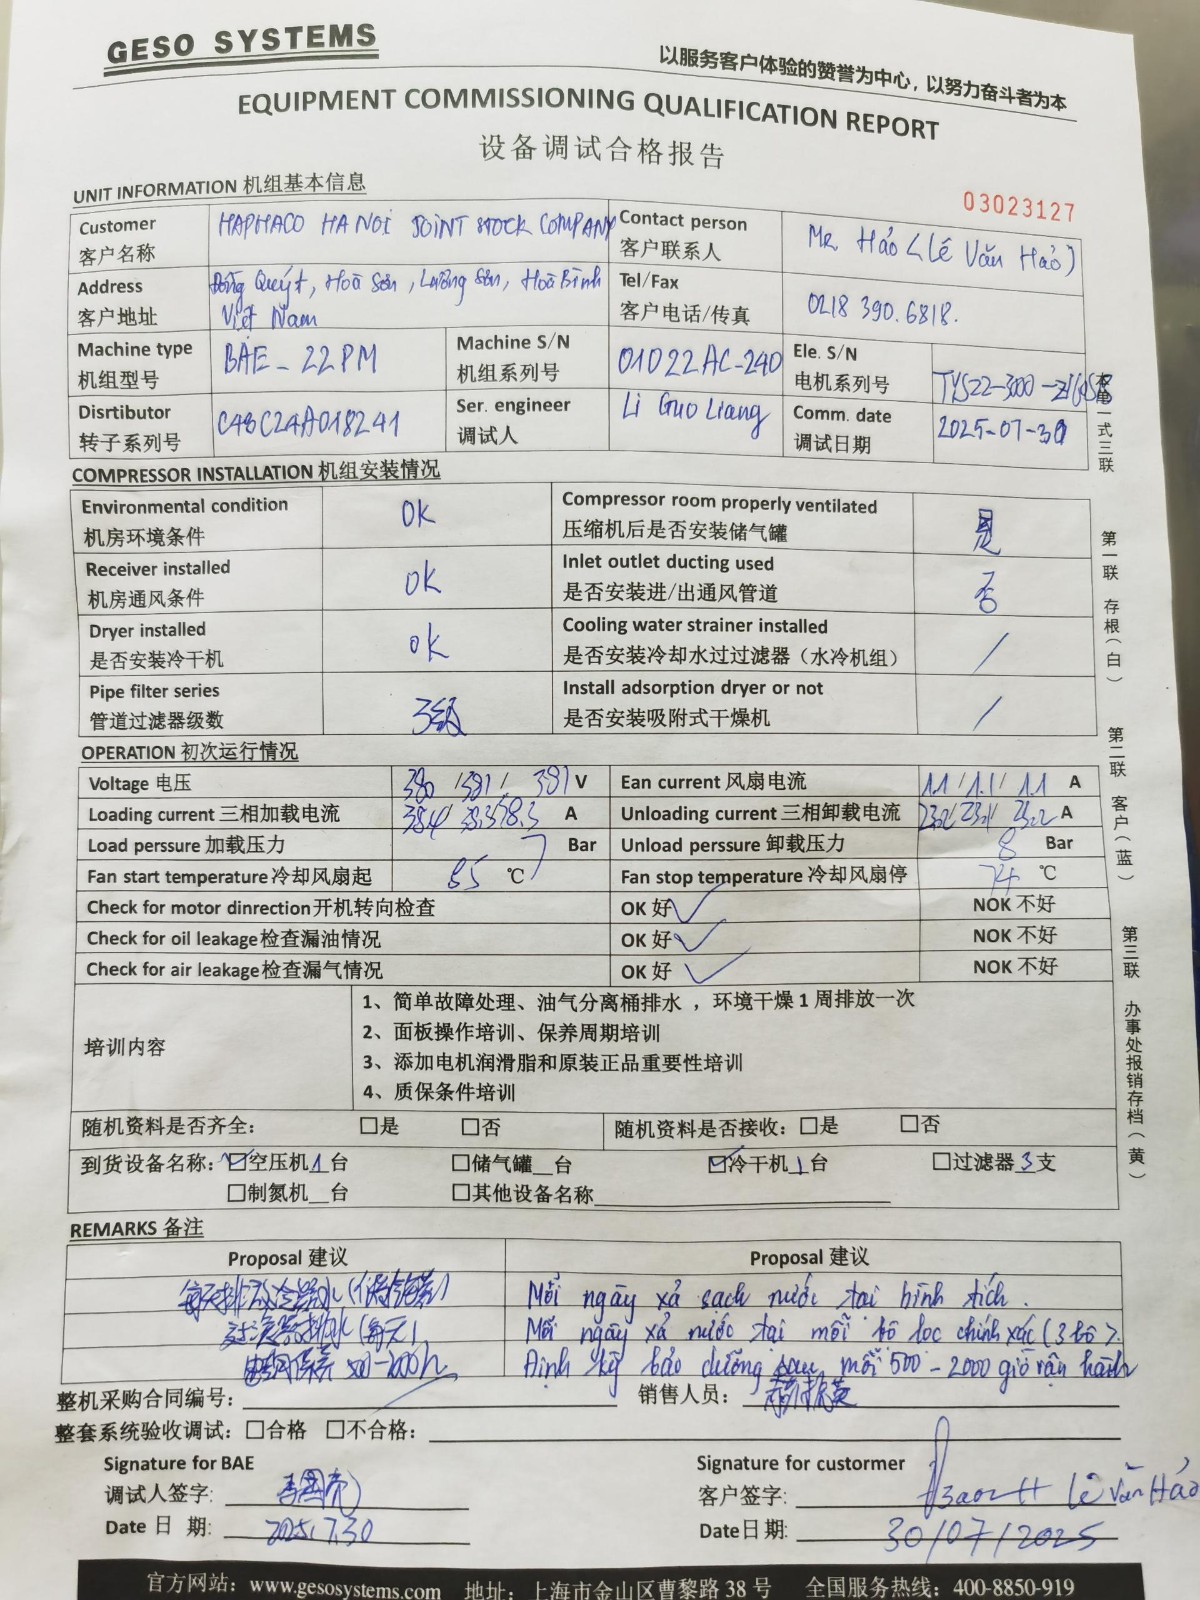 GESO SYSTEMS
以服务客户体验的赞誉为中心，以努力奋斗者为本
EQUIPMENT COMMISSIONING QUALIFICATION REPORT
设备调试合格报告
UNIT INFORMATION 机组基本信息
03023127
Customer 客户名称 HAPHACO HA NOI JOINT STOCK COMPANY Contact person 客户联系人 Mr. Hảo (Lê Văn Hảo)
Address 客户地址 Đồng Quýt, Hoà Sơn, Lương Sơn, Hoà Bình Việt Nam Tel/Fax 客户电话/传真 0218 390.6818.
Machine type 机组型号 BAE-22PM Machine S/N 机组系列号 01022AC-240 Ele. S/N 电机系列号 TYS22-3000
Disrtibutor 转子系列号 C48C24A018241 Ser. engineer 调试人 Li Guo Liang Comm. date 调试日期 2025-07-30
COMPRESSOR INSTALLATION 机组安装情况
Environmental condition 机房环境条件 OK Compressor room properly ventilated 压缩机后是否安装储气罐 是
Receiver installed 机房通风条件 OK Inlet outlet ducting used 是否安装进/出通风管道 否
Dryer installed 是否安装冷干机 OK Cooling water strainer installed 是否安装冷却水过过滤器（水冷机组） /
Pipe filter series 管道过滤器级数 3级 Install adsorption dryer or not 是否安装吸附式干燥机 /
OPERATION 初次运行情况
Voltage 电压 380 /381/ 381 V Ean current 风扇电流 1.1 / 1.1 / 1.1 A
Loading current 三相加载电流 38.4/ 38.3/38.3 A Unloading current 三相卸载电流 23.2/23.1/ 23.2 A
Load perssure 加载压力 7 Bar Unload perssure 卸载压力 8 Bar
Fan start temperature 冷却风扇起 85 ℃ Fan stop temperature 冷却风扇停 74 ℃
Check for motor dinrection 开机转向检查 OK 好 ✓ NOK 不好
Check for oil leakage 检查漏油情况 OK 好 ✓ NOK 不好
Check for air leakage 检查漏气情况 OK 好 ✓ NOK 不好
培训内容
1、简单故障处理、油气分离桶排水，环境干燥 1 周排放一次
2、面板操作培训、保养周期培训
3、添加电机润滑脂和原装正品重要性培训
4、质保条件培训
随机资料是否齐全： □是 □否 随机资料是否接收：□是 □否
到货设备名称：☑空压机 1 台 □储气罐__台 ☑冷干机 1 台 □过滤器 3 支
□制氮机__台 □其他设备名称
REMARKS 备注
Proposal 建议 Proposal 建议
Mỗi ngày xả sạch nước tại bình tích.
过滤器排水(每天) Mỗi ngày xả nước tại mỗi bộ lọc chính xác (3 bộ).
500-2000h Định kỳ bảo dưỡng sau mỗi 500 - 2000 giờ vận hành
整机采购合同编号： 销售人员：
整套系统验收调试：□合格 □不合格：
Signature for BAE Signature for custormer
调试人签字: 李国亮 客户签字: Lê Văn Hảo
Date 日 期: 2025.7.30 Date 日 期: 30/07/2025
官方网站：www.gesosystems.com 地址：上海市金山区曹黎路 38 号 全国服务热线：400-8850-919
本单一式三联
第一联 存根（白）
第二联 客户（蓝）
第三联 办事处报销存档（黄）